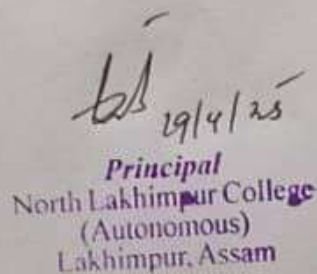 29/4/25
Principal
North Lakhimpur College
(Autonomous)
Lakhimpur, Assam